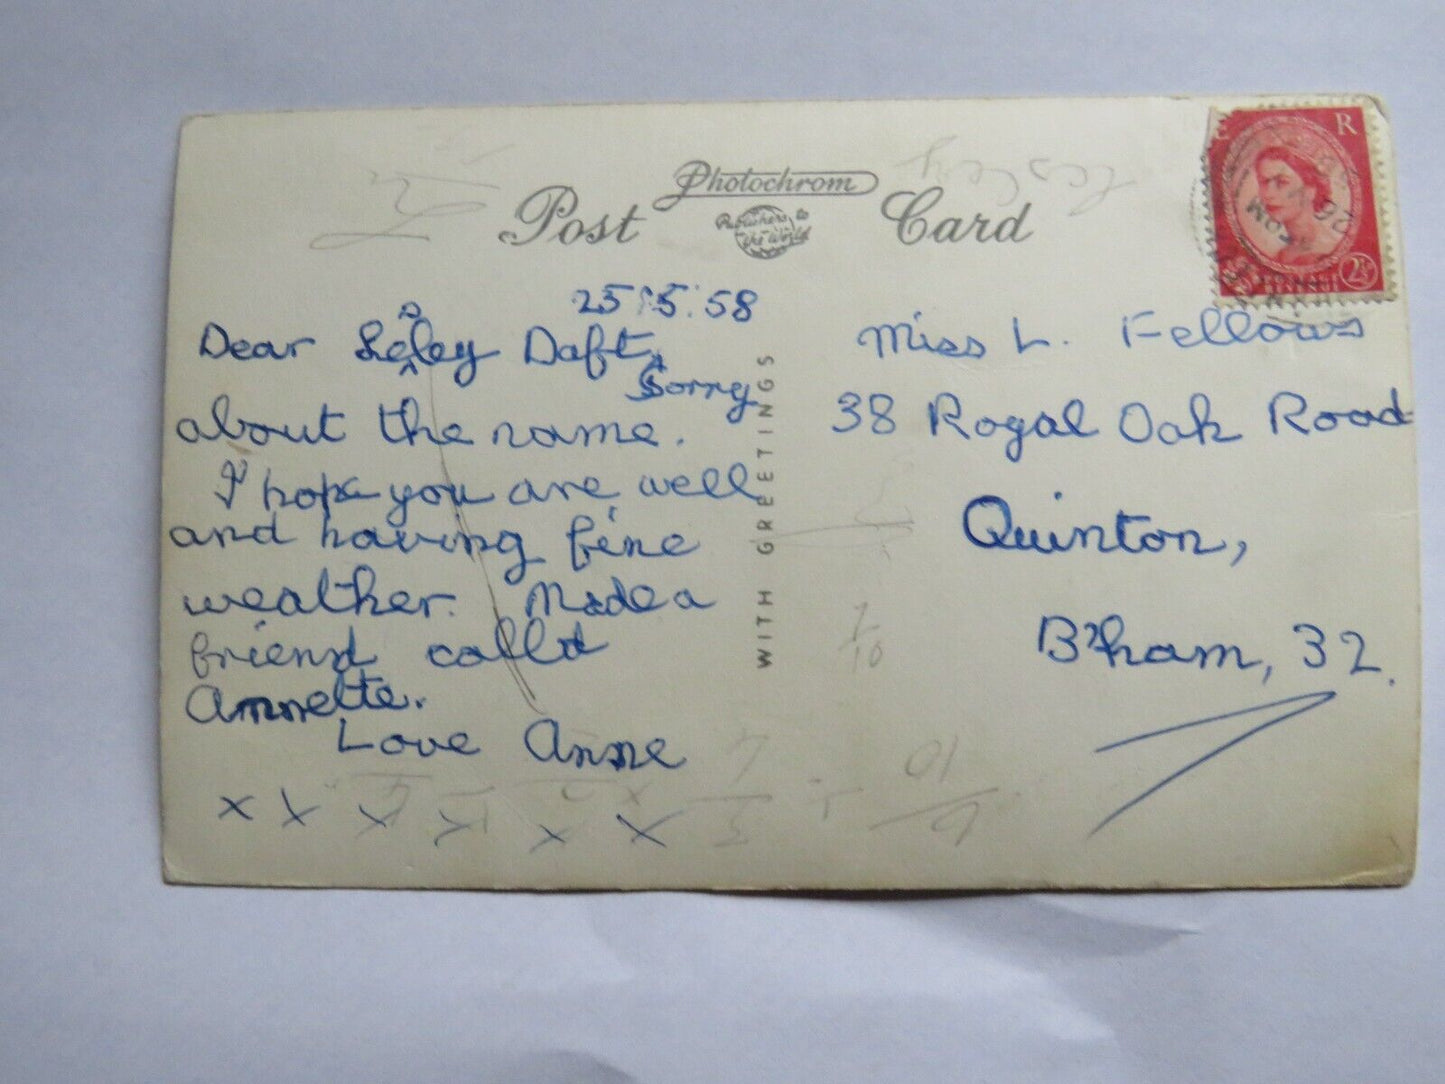 Post Card
Photochrom
Publishers to the World
25.5.58
Dear Lesley Daft,
Sorry
about the name.
I hope you are well
and having fine
weather. Made a
friend calld
Annette.
Love Anne
x x x x x x
WITH GREETINGS
Miss L. Fellows
38 Royal Oak Road
Quinton,
B'ham, 32.
E R
2½
7/10
10